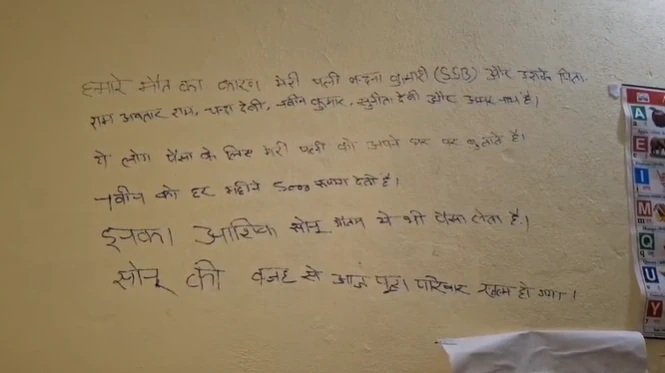 हमारे मौत का कारण मेरी पत्नी कुमारी (SSB) और उसके पिता
राम अवतार राम, चन्दा देवी, नवीन कुमार, सुनीता देवी और अमर है।
ये लोग पैसा के लिए मेरी पत्नी को अपने घर पर बुलाते है।
नवीन को हर महीने 5000 रूपया देती है।
इनका आशिक सोनू ये भी पैसा लेता है।
सोनू की वजह से आज पूरा परिवार खत्म हो गया।
A
E
I
M
Q
U
Y